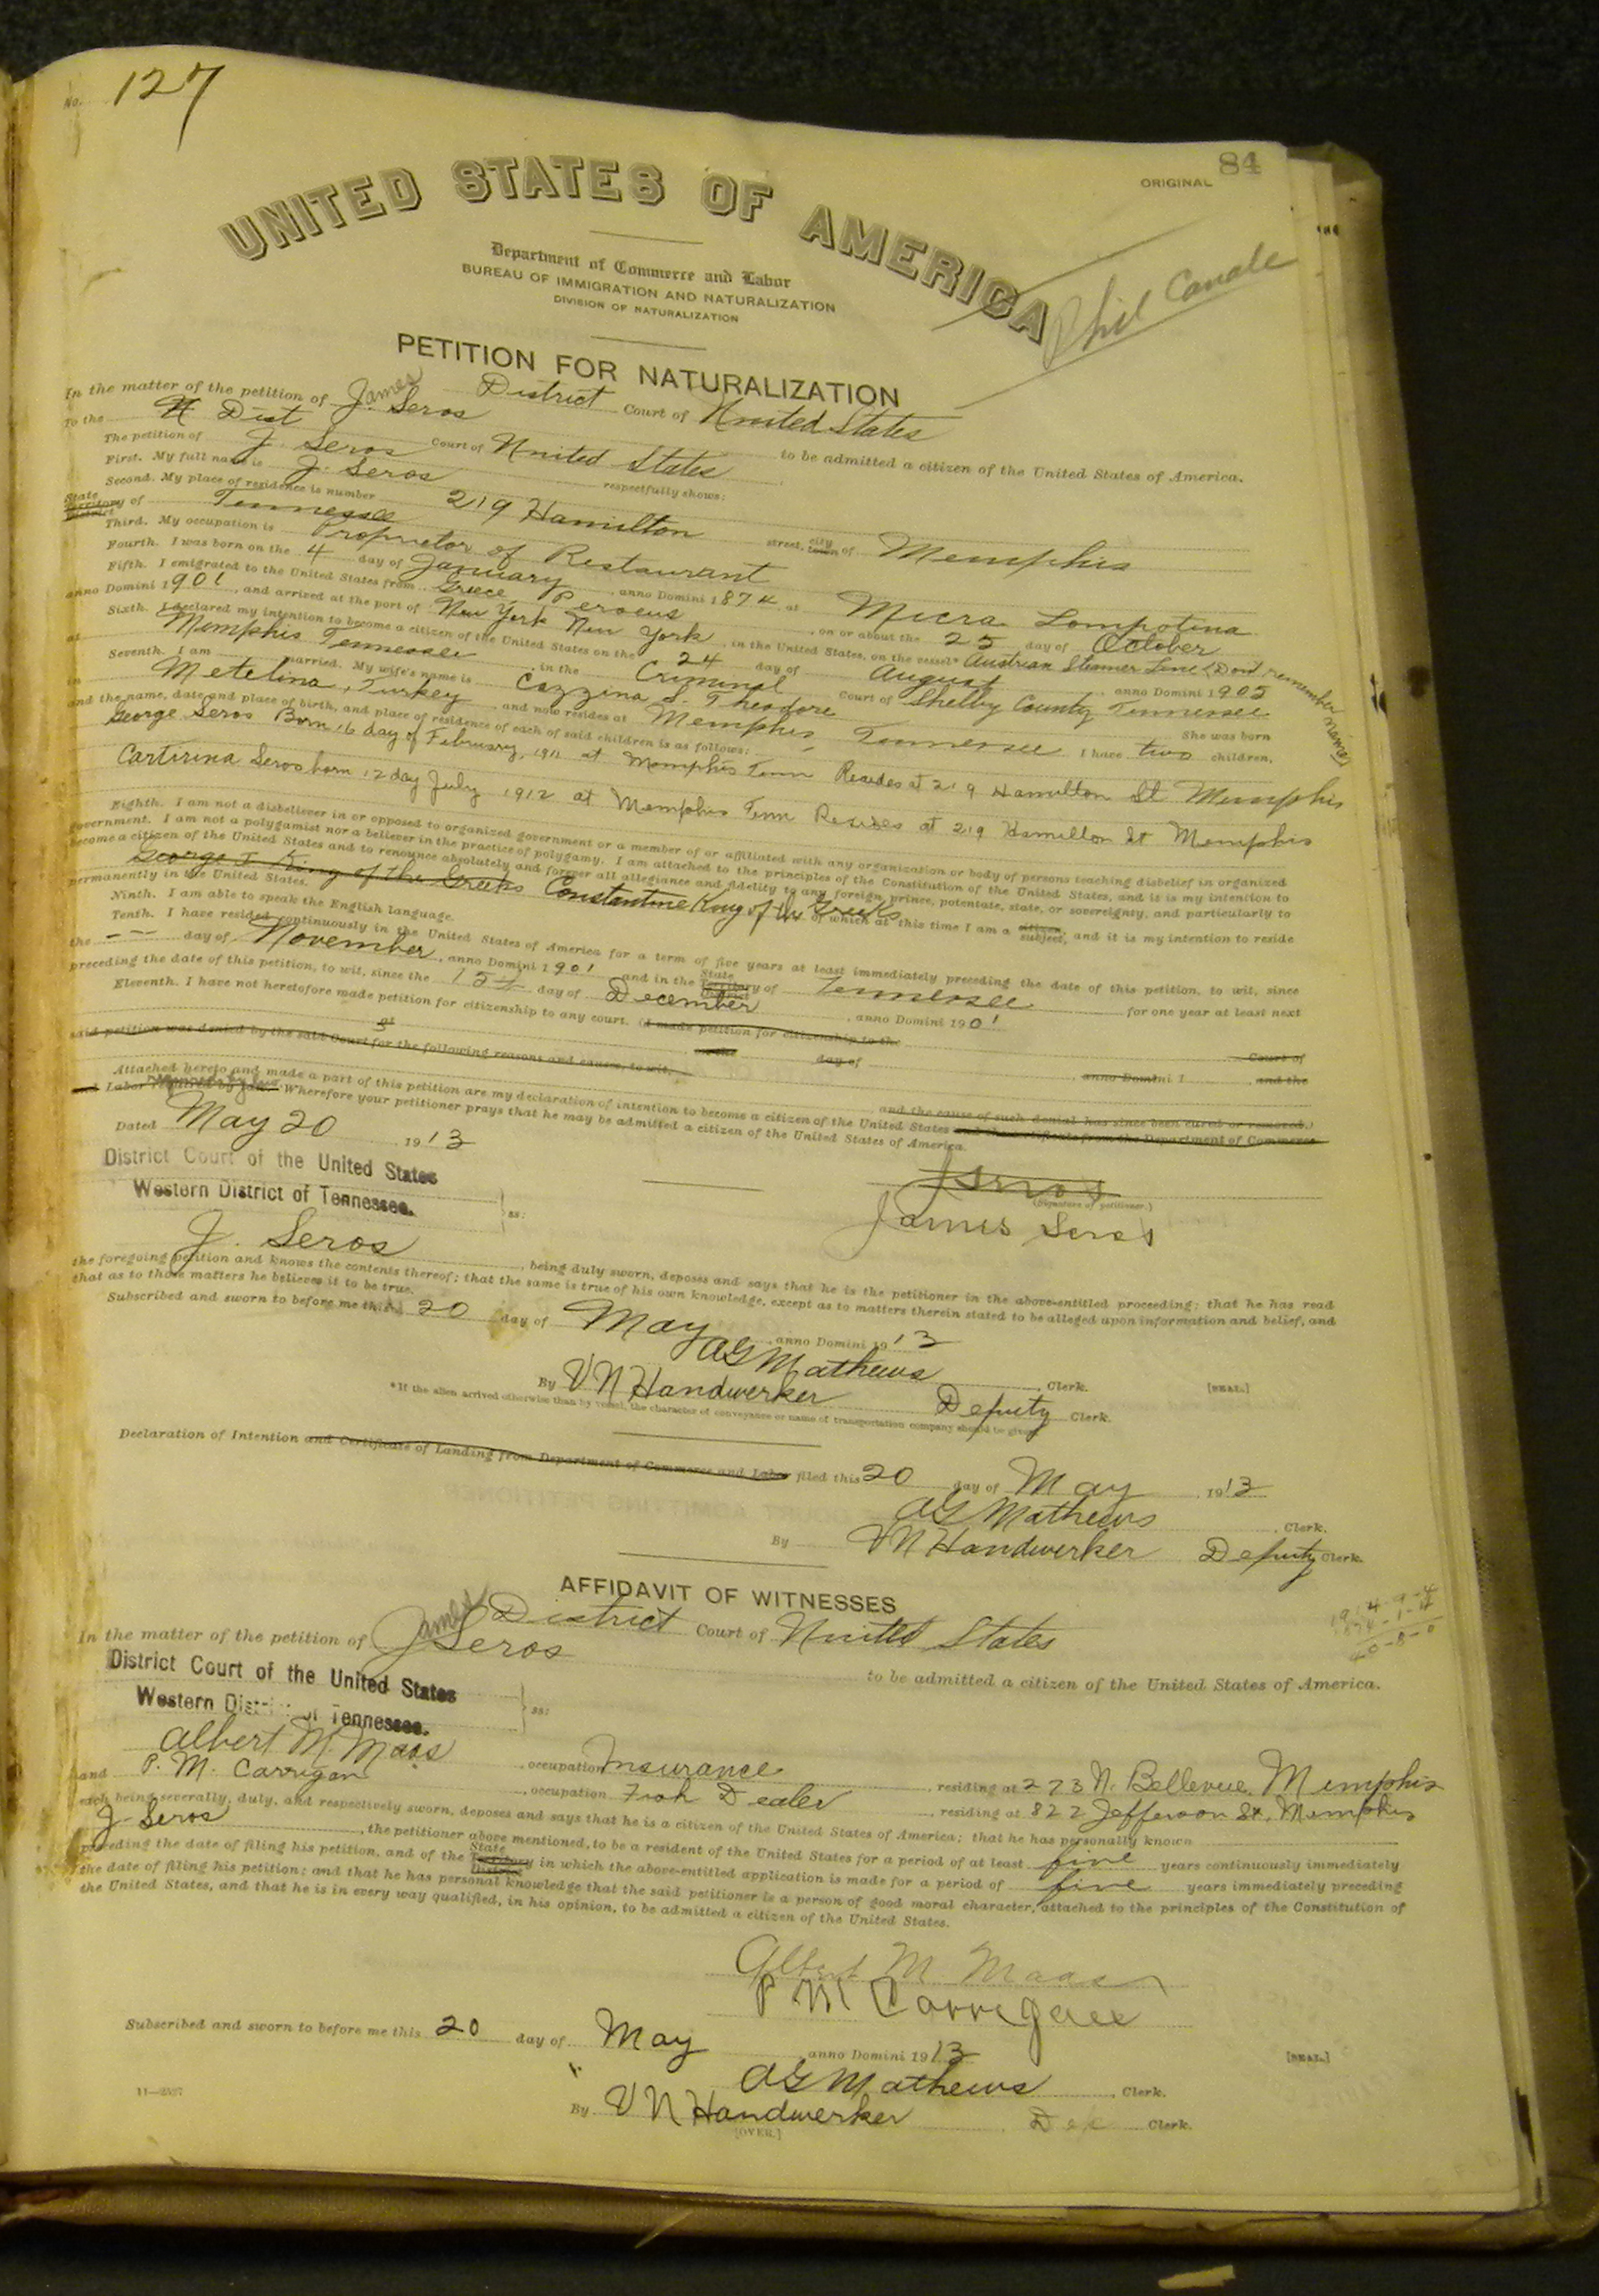 No. 127
ORIGINAL 84
UNITED STATES OF AMERICA
Phil Canale
Department of Commerce and Labor
BUREAU OF IMMIGRATION AND NATURALIZATION
DIVISION OF NATURALIZATION
PETITION FOR NATURALIZATION
District Court of United States
In the matter of the petition of James J. Seros to be admitted a citizen of the United States of America.
To the Dist Court of United States
The petition of J. Seros respectfully shows:
First. My full name is J. Seros
Second. My place of residence is number 219 Hamilton street, city town of Memphis
State Territory District of Tennessee
Third. My occupation is Proprietor of Restaurant
Fourth. I was born on the 4 day of January, anno Domini 1874 at Micra Lompotina
Fifth. I emigrated to the United States from Greece Peroeus, on or about the 25 day of October
anno Domini 1901, and arrived at the port of New York New York, in the United States, on the vessel* Austrian Steamer Line (Dont remember name)
Sixth. I declared my intention to become a citizen of the United States on the 24 day of August, anno Domini 1905
at Memphis Tennessee, in the Criminal Court of Shelby County, Tennessee
Seventh. I am married. My wife's name is Cazzina S. Theodore She was born
in Metelina, Turkey and now resides at Memphis, Tennessee I have two children,
and the name, date and place of birth, and place of residence of each of said children is as follows:
George Seros Born 16 day of February, 1911 at Memphis Tenn Resides at 219 Hamilton St Memphis
Cartirina Seros born 12 day July 1912 at Memphis Tenn Resides at 219 Hamilton St Memphis
Eighth. I am not a disbeliever in or opposed to organized government or a member of or affiliated with any organization or body of persons teaching disbelief in organized
government. I am not a polygamist nor a believer in the practice of polygamy. I am attached to the principles of the Constitution of the United States, and it is my intention to
become a citizen of the United States and to renounce absolutely and forever all allegiance and fidelity to any foreign prince, potentate, state, or sovereignty, and particularly to
George I King of the Greeks Constantine King of the Greeks of which at this time I am a citizen subject, and it is my intention to reside
permanently in the United States.
Ninth. I am able to speak the English language.
Tenth. I have resided continuously in the United States of America for a term of five years at least immediately preceding the date of this petition, to wit, since
the --- day of November, anno Domini 1901 and in the State Territory District of Tennessee for one year at least next
preceding the date of this petition, to wit, since the 15th day of December, anno Domini 1901
Eleventh. I have not heretofore made petition for citizenship to any court. (I made petition for citizenship to the Court of
at on the day of, anno Domini 1, and the
said petition was denied by the said Court for the following reasons and causes, to wit,
and the cause of such denial has since been cured or removed.)
Attached hereto and made a part of this petition are my declaration of intention to become a citizen of the United States and the certificate from the Department of Commerce
and Labor required by law. Wherefore your petitioner prays that he may be admitted a citizen of the United States of America.
Dated May 20 1913
J Seros
(Signature of petitioner.)
James Seros
District Court of the United States
Western District of Tennessee. ss:
J. Seros, being duly sworn, deposes and says that he is the petitioner in the above-entitled proceeding; that he has read
the foregoing petition and knows the contents thereof; that the same is true of his own knowledge, except as to matters therein stated to be alleged upon information and belief, and
that as to those matters he believes it to be true.
Subscribed and sworn to before me this 20 day of May, anno Domini 1913
AG Mathews, Clerk. [SEAL.]
By VN Handwerker Deputy Clerk.
*If the alien arrived otherwise than by vessel, the character of conveyance or name of transportation company should be given.
Declaration of Intention and Certificate of Landing from Department of Commerce and Labor filed this 20 day of May, 1913
AG Mathews, Clerk.
By VN Handwerker Deputy Clerk.
AFFIDAVIT OF WITNESSES
District Court of United States
In the matter of the petition of James J Seros to be admitted a citizen of the United States of America.
District Court of the United States
Western District of Tennessee. ss:
Albert M. Maas, occupation Insurance, residing at 273 N. Bellevue, Memphis
and P. M. Carrigan, occupation Fish Dealer, residing at 822 Jefferson St. Memphis
each being severally, duly, and respectively sworn, deposes and says that he is a citizen of the United States of America; that he has personally known
J. Seros, the petitioner above mentioned, to be a resident of the United States for a period of at least five years continuously immediately
preceding the date of filing his petition, and of the State Territory District in which the above-entitled application is made for a period of five years immediately preceding
the date of filing his petition; and that he has personal knowledge that the said petitioner is a person of good moral character, attached to the principles of the Constitution of
the United States, and that he is in every way qualified, in his opinion, to be admitted a citizen of the United States.
Albert M. Maas
P M Carrigan
Subscribed and sworn to before me this 20 day of May, anno Domini 1913
[SEAL.]
AG Mathews, Clerk.
By VN Handwerker, Dep Clerk.
[OVER.]